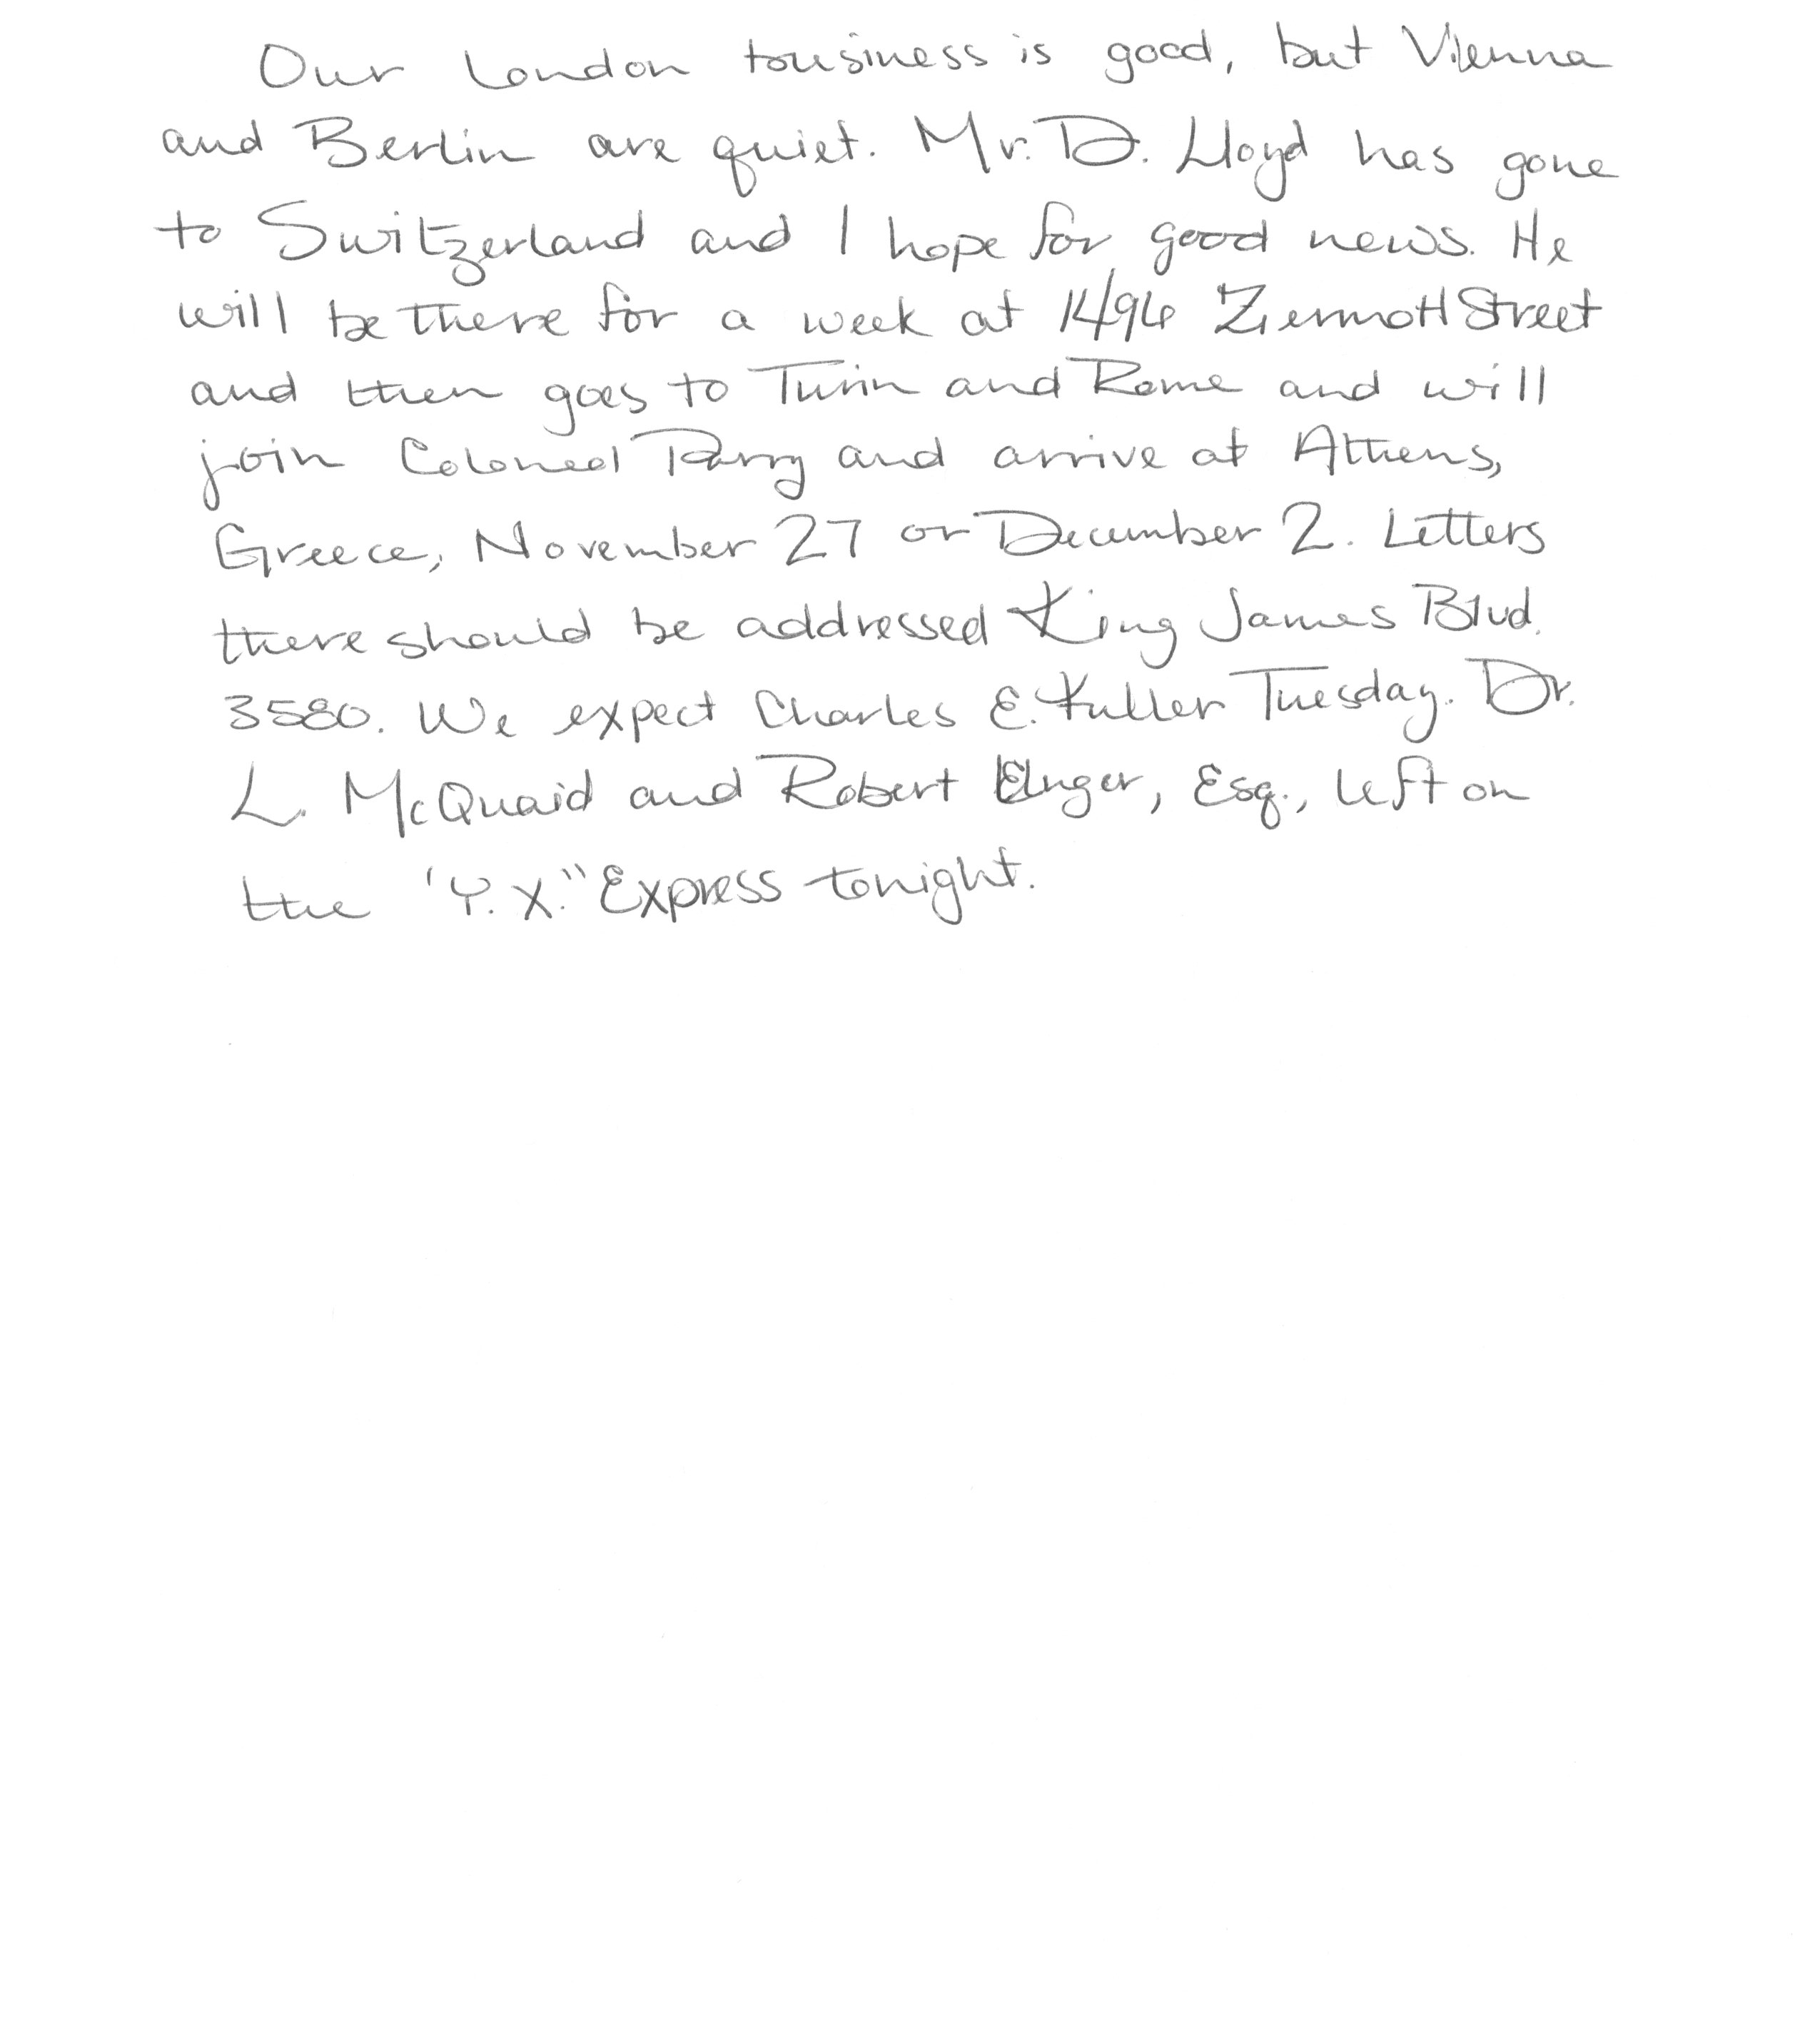 Our London business is good, but Vienna
and Berlin are quiet. Mr. D. Lloyd has gone
to Switzerland and I hope for good news. He
will be there for a week at 1496 Zermott Street
and then goes to Turin and Rome and will
join Colonel Parry and arrive at Athens,
Greece, November 27 or December 2. Letters
there should be addressed King James Blvd.
3580. We expect Charles E. Fuller Tuesday. Dr.
L. McQuaid and Robert Unger, Esq., left on
the "Y.X." Express tonight.